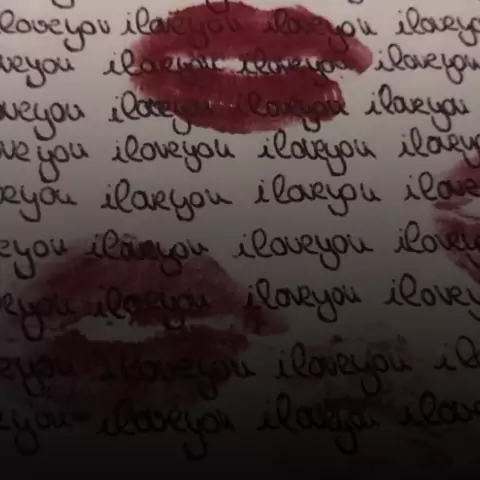 loveyou iloveyou iloveyou ilovey
veyou iloveyou iloveyou iloveyou
veyou iloveyou iloveyou iloveyou
ve you iloveyou iloveyou ilovey
eyou iloveyou iloveyou ilove
eyou iloveyou iloveyou ilovey
veyou iloveyou iloveyou ilovey
eyou iloveyou iloveyou il
eyou iloveyou iloveyou ilove